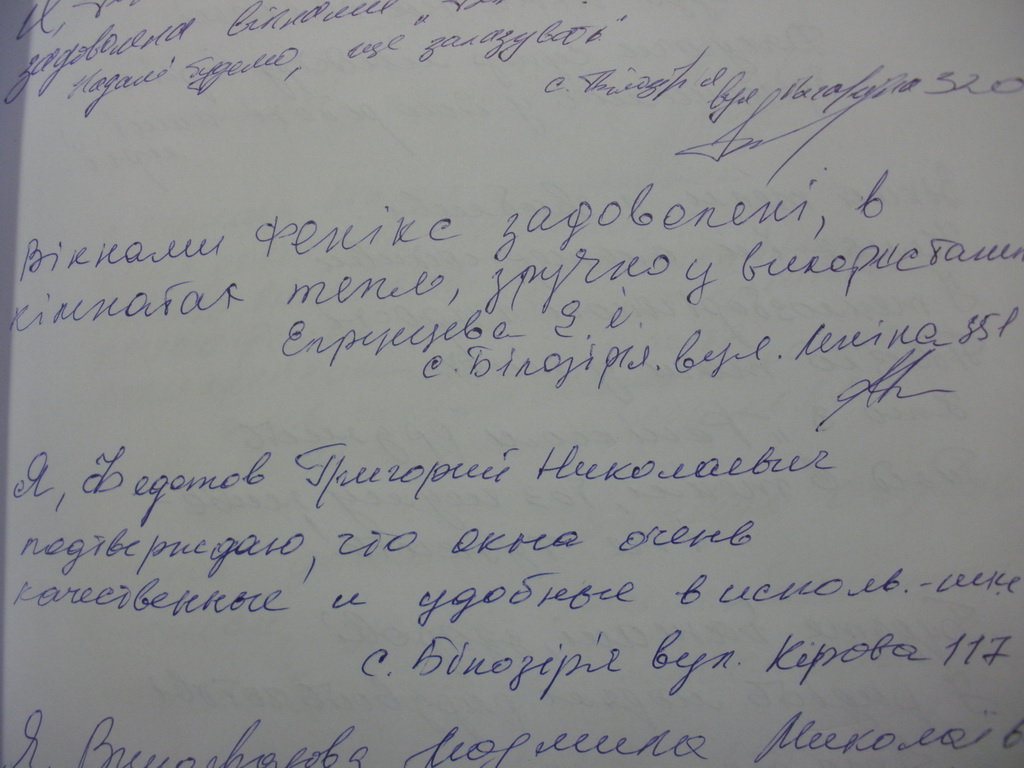 задоволена вікнами
Надалі будемо, ще "заказувать"
с. Білозір'я вул 320
Вікнами Фенікс задоволені, в
кімнатах тепло, зручно у використанні
с. Білозір'я. вул. Леніна 351
Я, Федотов Григорий Николаевич
подтверждаю, что окна очень
качественные и удобные в исполь.-нии.
с. Білозір'я вул. Кірова 117
Я, Людмила Миколаїв